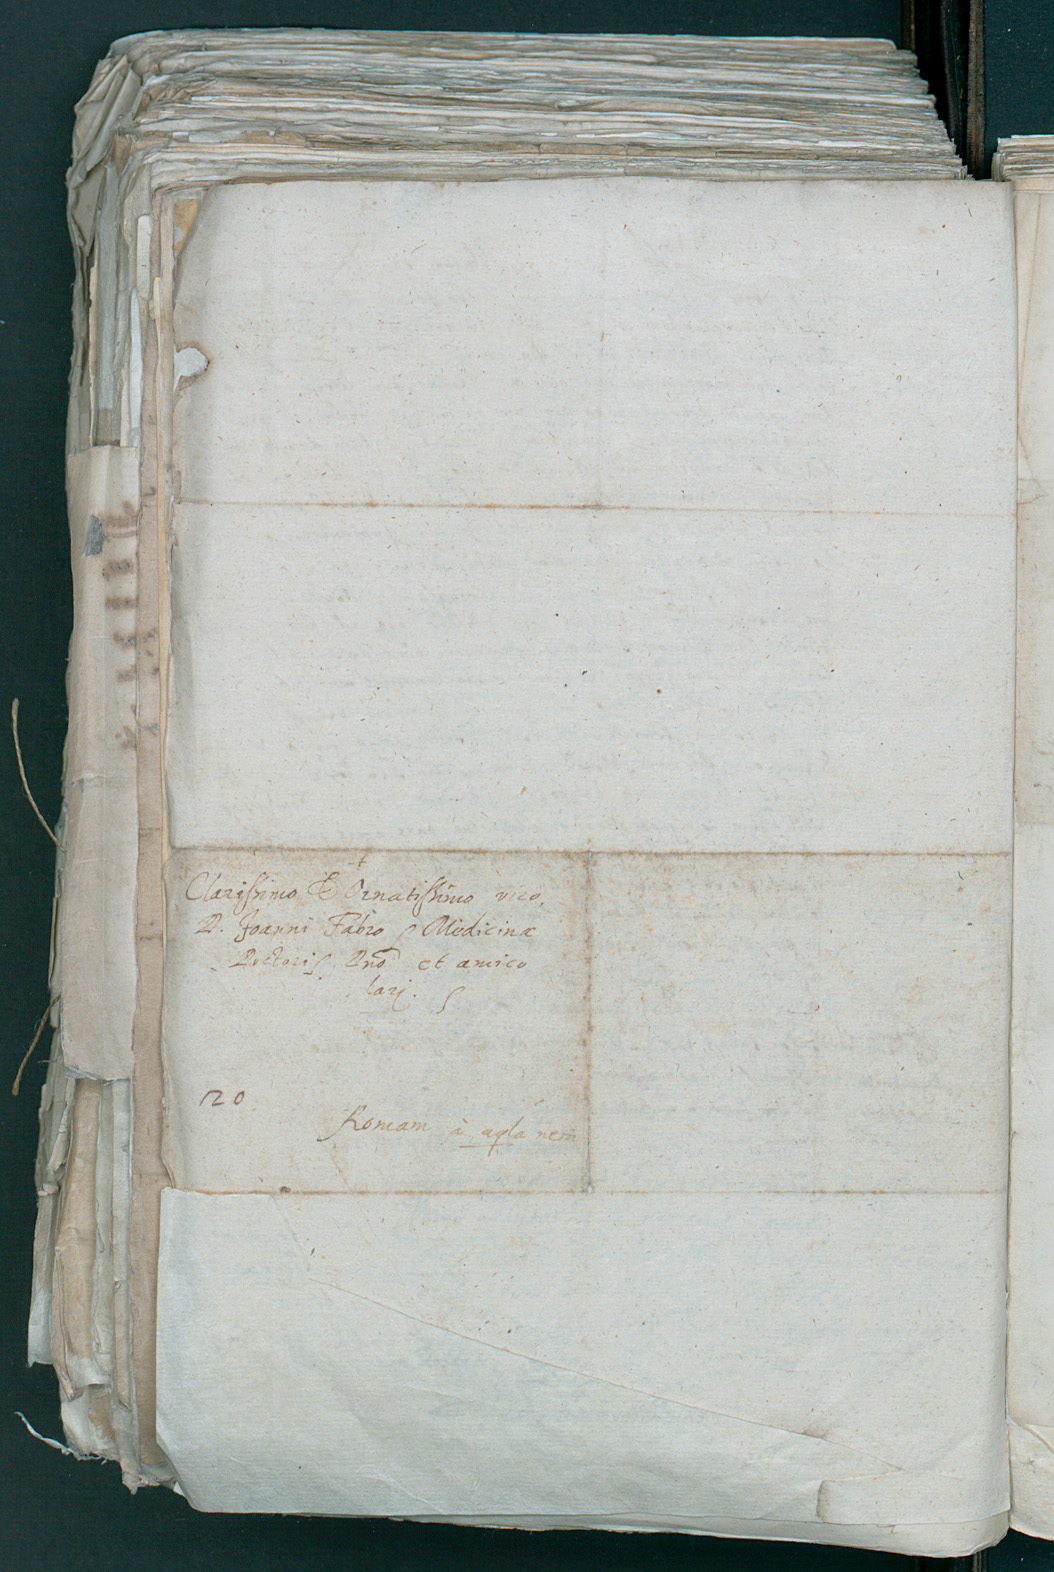 Clarissimo & Ornatissimo viro,
D. Joanni Fabro Medicinæ
Doctori Dno et amico
cari.
20
Romam à